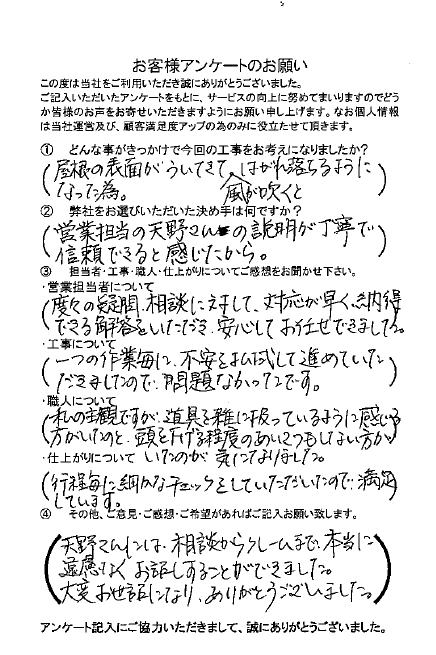 お客様アンケートのお願い
この度は当社をご利用いただき誠にありがとうございました。
ご記入いただいたアンケートをもとに、サービスの向上に努めてまいりますのでどう
か皆様のお声をお寄せいただきますようにお願い申し上げます。なお個人情報
は当社運営及び、顧客満足度アップの為のみに役立たせて頂きます。
① どんな事がきっかけで今回の工事をお考えになりましたか？
屋根の表面がういてきて、はがれ落ちるように
なった為。 風が吹くと
② 弊社をお選びいただいた決め手は何ですか？
営業担当の天野さんの説明が丁寧で
信頼できると感じたから。
③ 担当者・工事・職人・仕上がりについてご感想をお聞かせ下さい。
・営業担当者について
度々の疑問、相談に対して、対応が早く、納得
できる解答をいただき、安心してお任せできました。
・工事について
一つの作業毎に、不安を払拭して進めていた
だきましたので、問題なかったです。
・職人について
私の主観ですが、道具を雑に扱っているように感じる
方がいたのと、頭を下げる程度のあいさつもしない方が
・仕上がりについて いたのが気になりました。
行程毎に細かなチェックをしていただいたので、満足
しています。
④ その他、ご意見・ご感想・ご希望があればご記入お願い致します。
天野さんには、相談からクレームまで、本当に
遠慮なくお話しすることができました。
大変お世話になり、ありがとうございました。
アンケート記入にご協力いただきまして、誠にありがとうございました。